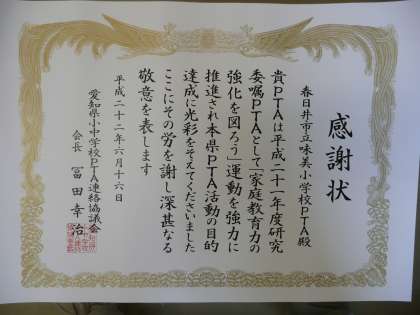 感謝状
春日井市立味美小学校PTA殿
貴PTAは平成二十一年度研究
委嘱PTAとして「家庭教育力の
強化を図ろう」運動を強力に
推進され本県PTA活動の目的
達成に光彩をそえてくださいました
ここにその労を謝し深甚なる
敬意を表します
平成二十二年六月十六日
愛知県小中学校PTA連絡協議会
会長 冨田幸治